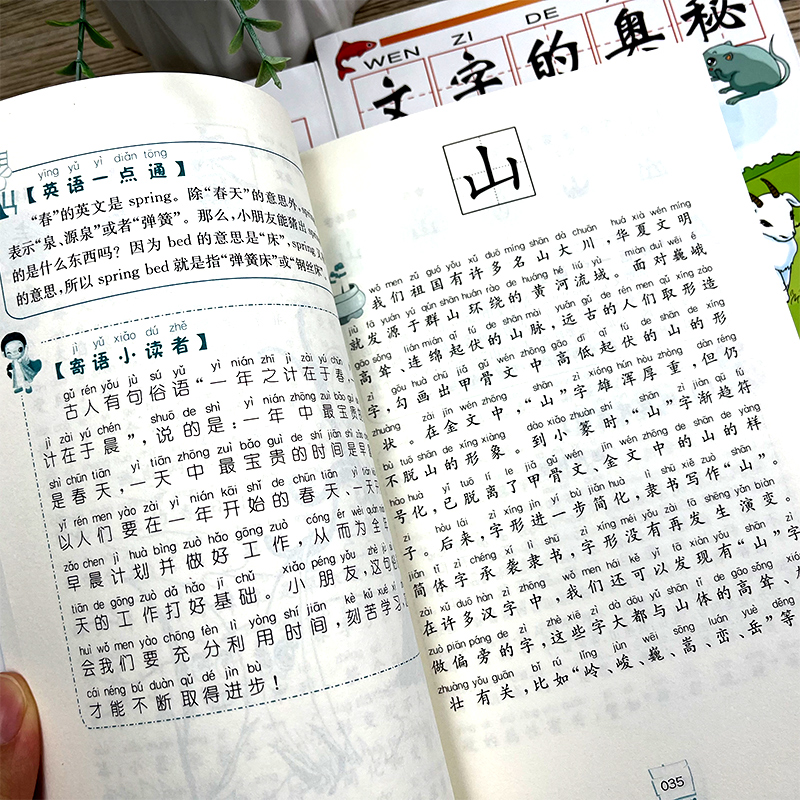 WEN ZI DE
文字的奥秘
yīng yǔ yì diǎn tōng
【英语一点通】
“春”的英文是 spring。除“春天”的意思外,
表示“泉、源泉”或者“弹簧”。那么,小朋友能猜出
的是什么东西吗?因为 bed 的意思是“床”,
的意思,所以 spring bed 就是指“弹簧床”或“钢丝床”
jì yǔ xiǎo dú zhě
【寄语小读者】
gǔ rén yǒu jù sú yǔ yì nián zhī jì zài yú chūn
古人有句俗语“一年之计在于春,
jì zài yú chén shuō de shì yì nián zhōng zuì bǎo guì
计在于晨”,说的是:一年中最宝贵
shì chūn tiān yì tiān zhōng zuì bǎo guì de shí jiān shì
是春天,一天中最宝贵的时间是早
yǐ rén men yào zài yì nián kāi shǐ de chūn tiān yì tiān
以人们要在一年开始的春天、一天开
zǎo chen jì huà bìng zuò hǎo gōng zuò cóng ér wèi quán
早晨计划并做好工作,从而为全年
tiān de gōng zuò dǎ hǎo jī chǔ xiǎo péng yǒu zhè jù
天的工作打好基础。小朋友,这句
huì wǒ men yào chōng fèn lì yòng shí jiān kè kǔ xué xí
会我们要充分利用时间,刻苦学习,
cái néng bú duàn qǔ dé jìn bù
才能不断取得进步!
山
wǒ men zǔ guó yǒu xǔ duō míng shān dà chuān huá xià wén míng
我们祖国有许多名山大川,华夏文明
jiù fā yuán yú qún shān huán rào de huáng hé liú yù miàn duì wēi é
就发源于群山环绕的黄河流域。面对巍峨
gāo sǒng lián mián qǐ fú de shān mài yuǎn gǔ de rén men qǔ xíng zào
高耸、连绵起伏的山脉,远古的人们取形造
zì gōu huà chū jiǎ gǔ wén zhōng gāo dī qǐ fú de shān de xíng
字,勾画出甲骨文中高低起伏的山的形
zhuàng zài jīn wén zhōng shān zì xióng hún hòu zhòng dàn réng
状。在金文中,“山”字雄浑厚重,但仍
bù tuō shān de xíng xiàng dào xiǎo zhuàn shí shān zì jiàn qū fú
不脱山的形象。到小篆时,“山”字渐趋符
hào huà yǐ tuō lí le jiǎ gǔ wén jīn wén zhōng de shān de yàng
号化,已脱离了甲骨文、金文中的山的样
zi hòu lái zì xíng jìn yí bù jiǎn huà lì shū xiě zuò shān
子。后来,字形进一步简化,隶书写作“山”。
jiǎn tǐ zì chéng xí lì shū zì xíng méi yǒu zài fā shēng yǎn biàn
简体字承袭隶书,字形没有再发生演变。
zài xǔ duō hàn zì zhōng wǒ men hái kě yǐ fā xiàn yǒu shān zì
在许多汉字中,我们还可以发现有“山”字
zuò piān páng de zì zhè xiē zì dà dōu yǔ shān tǐ de gāo sǒng
做偏旁的字,这些字大都与山体的高耸、
zhuàng yǒu guān bǐ rú lǐng jùn wēi sōng luán yuè děng
壮有关,比如“岭、峻、巍、嵩、峦、岳”等
035